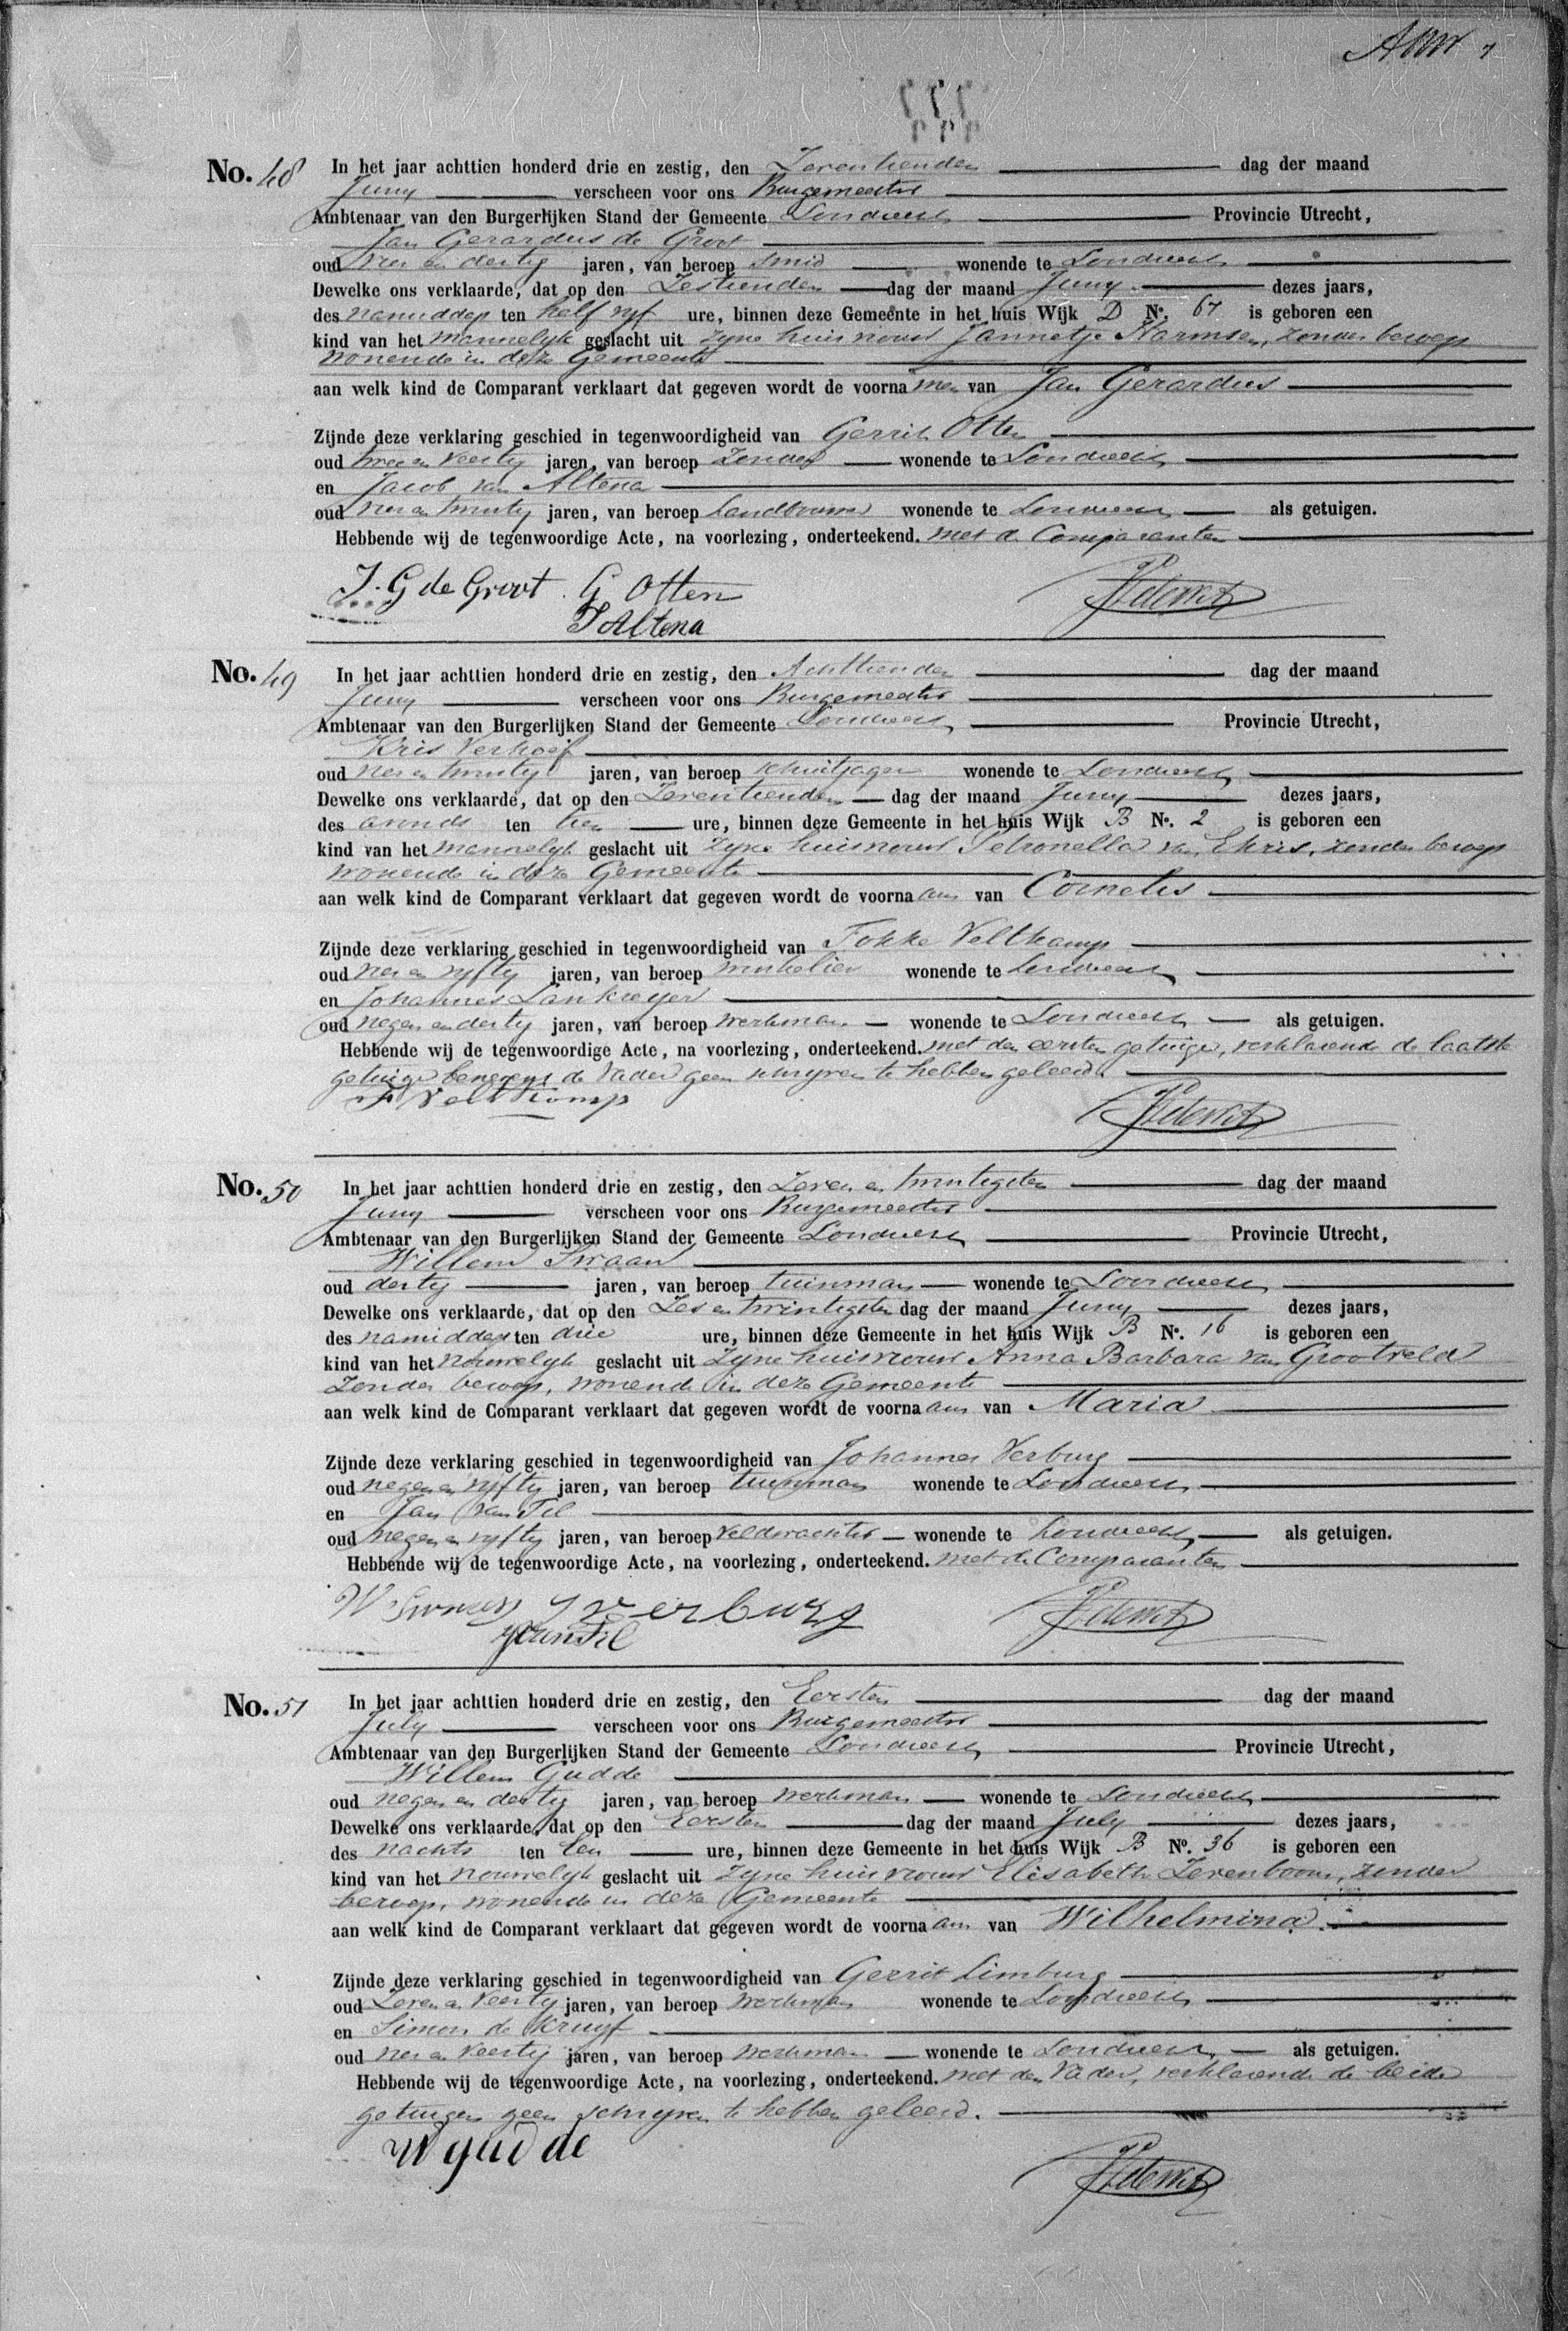 No. 48 In het jaar achttien honderd drie en zestig, den Zeventienden dag der maand
Juny verscheen voor ons Burgemeester
Ambtenaar van den Burgerlijken Stand der Gemeente Loenersloot Provincie Utrecht,
Jan Gerardus de Groot
oud vier en dertig jaren, van beroep smid wonende te
Dewelke ons verklaarde, dat op den Zestienden dag der maand Juny dezes jaars,
des namiddags ten half vyf ure, binnen deze Gemeente in het huis Wijk D No. 67 is geboren een
kind van het mannelyk geslacht uit zyne huisvrouw Jannetje Harmsen, zonder beroep
wonende in deze Gemeente
aan welk kind de Comparant verklaart dat gegeven wordt de voorna men van Jan Gerardus
Zijnde deze verklaring geschied in tegenwoordigheid van Gerrit Otten
oud twee en veertig jaren, van beroep zonder wonende te
en Jacob van Altena
oud vier en twintig jaren, van beroep Landbouwer wonende te als getuigen.
Hebbende wij de tegenwoordige Acte, na voorlezing, onderteekend. met de Comparanten
J. G de Groot G Otten
J Altena
No. 49 In het jaar achttien honderd drie en zestig, den Achttienden dag der maand
Juny verscheen voor ons Burgemeester
Ambtenaar van den Burgerlijken Stand der Gemeente Provincie Utrecht,
Kris Verhoef
oud vier en twintig jaren, van beroep schuitjager wonende te
Dewelke ons verklaarde, dat op den Zeventienden dag der maand Juny dezes jaars,
des avonds ten tien ure, binnen deze Gemeente in het huis Wijk B No. 2 is geboren een
kind van het mannelyk geslacht uit zyne huisvrouw Petronella van Ekris, zonder beroep
wonende in deze Gemeente
aan welk kind de Comparant verklaart dat gegeven wordt de voorna am van Cornelis
Zijnde deze verklaring geschied in tegenwoordigheid van Fokke Veltkamp
oud vier en vyftig jaren, van beroep winkelier wonende te
en Johannes Lankreyer
oud negen en dertig jaren, van beroep werkman wonende te als getuigen.
Hebbende wij de tegenwoordige Acte, na voorlezing, onderteekend. met den eersten getuige, verklarende de laatste
getuige benevens de Vader geen schryven te hebben geleerd.
F Veltkamp
No. 50 In het jaar achttien honderd drie en zestig, den Zeven en twintigsten dag der maand
Juny verscheen voor ons Burgemeester
Ambtenaar van den Burgerlijken Stand der Gemeente Provincie Utrecht,
Willem Swaan
oud dertig jaren, van beroep tuinman wonende te
Dewelke ons verklaarde, dat op den Zes en twintigsten dag der maand Juny dezes jaars,
des namiddags ten drie ure, binnen deze Gemeente in het huis Wijk B No. 16 is geboren een
kind van het vrouwelyk geslacht uit Zyne huisvrouw Anna Barbara van Grootveld
zonder beroep, wonende in deze Gemeente
aan welk kind de Comparant verklaart dat gegeven wordt de voorna am van Maria
Zijnde deze verklaring geschied in tegenwoordigheid van Johannes Verburg
oud negen en vyftig jaren, van beroep tuinman wonende te
en Jan van Til
oud negen en vyftig jaren, van beroep Veldwachter wonende te als getuigen.
Hebbende wij de tegenwoordige Acte, na voorlezing, onderteekend. met de Comparanten
W Swaan J verburg
J van Til
No. 51 In het jaar achttien honderd drie en zestig, den Eersten dag der maand
July verscheen voor ons Burgemeester
Ambtenaar van den Burgerlijken Stand der Gemeente Provincie Utrecht,
Willem Gudde
oud negen en dertig jaren, van beroep werkman wonende te
Dewelke ons verklaarde, dat op den Eersten dag der maand July dezes jaars,
des nachts ten een ure, binnen deze Gemeente in het huis Wijk B No. 36 is geboren een
kind van het vrouwelyk geslacht uit zyne huisvrouw Elisabeth Zevenboom, zonder
beroep, wonende in deze Gemeente
aan welk kind de Comparant verklaart dat gegeven wordt de voorna am van Wilhelmina
Zijnde deze verklaring geschied in tegenwoordigheid van Gerrit Limburg
oud Zeven en veertig jaren, van beroep werkman wonende te
en Simon de Kruyf
oud vier en veertig jaren, van beroep werkman wonende te als getuigen.
Hebbende wij de tegenwoordige Acte, na voorlezing, onderteekend. met den Vader, verklarende de beide
getuigen geen schryven te hebben geleerd.
W gudde